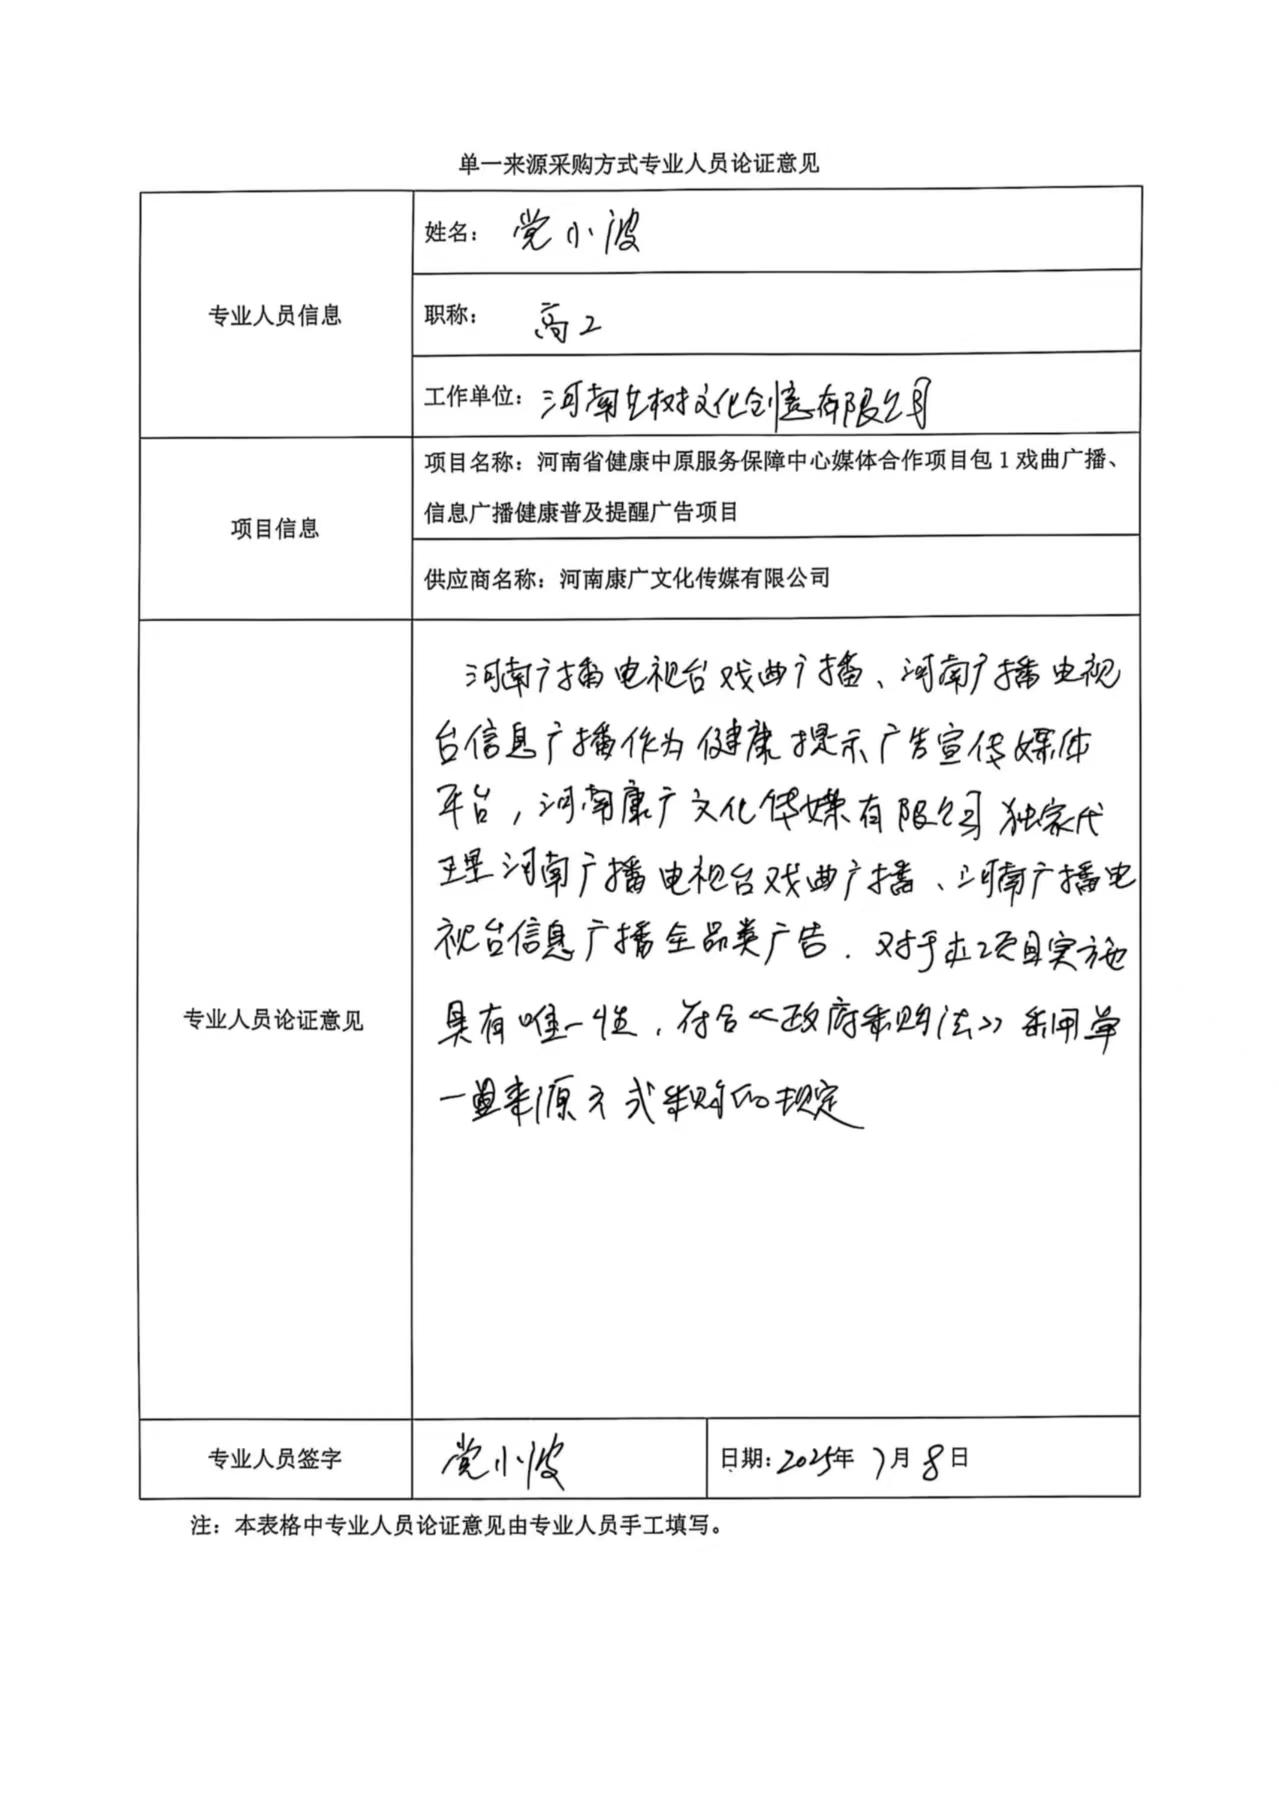 单一来源采购方式专业人员论证意见
专业人员信息
姓名：党小波
职称：高工
工作单位：河南 树文化创意有限公司
项目信息
项目名称：河南省健康中原服务保障中心媒体合作项目包1戏曲广播、
信息广播健康普及提醒广告项目
供应商名称：河南康广文化传媒有限公司
专业人员论证意见
河南广播电视台戏曲广播、河南广播电视
台信息广播作为健康提示广告宣传媒体
平台，河南康广文化传媒有限公司独家代
理河南广播电视台戏曲广播、河南广播电
视台信息广播全品类广告．对于 项目实施
具有唯一性，符合《政府采购法》采用单
一 来源方式采购的规定
专业人员签字
党小波
日期：2025年7月8日
注：本表格中专业人员论证意见由专业人员手工填写。